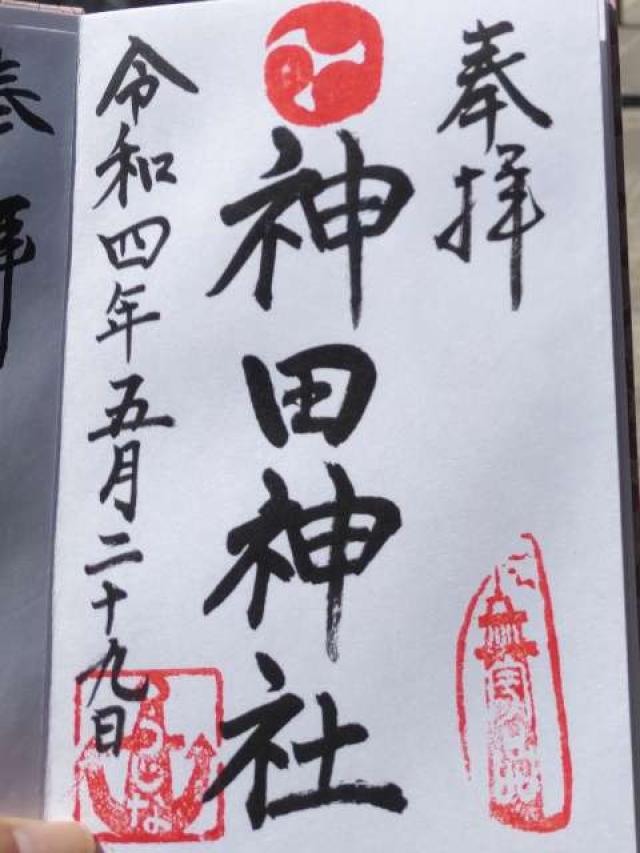 奉拝
神田神社
令和四年五月二十九日